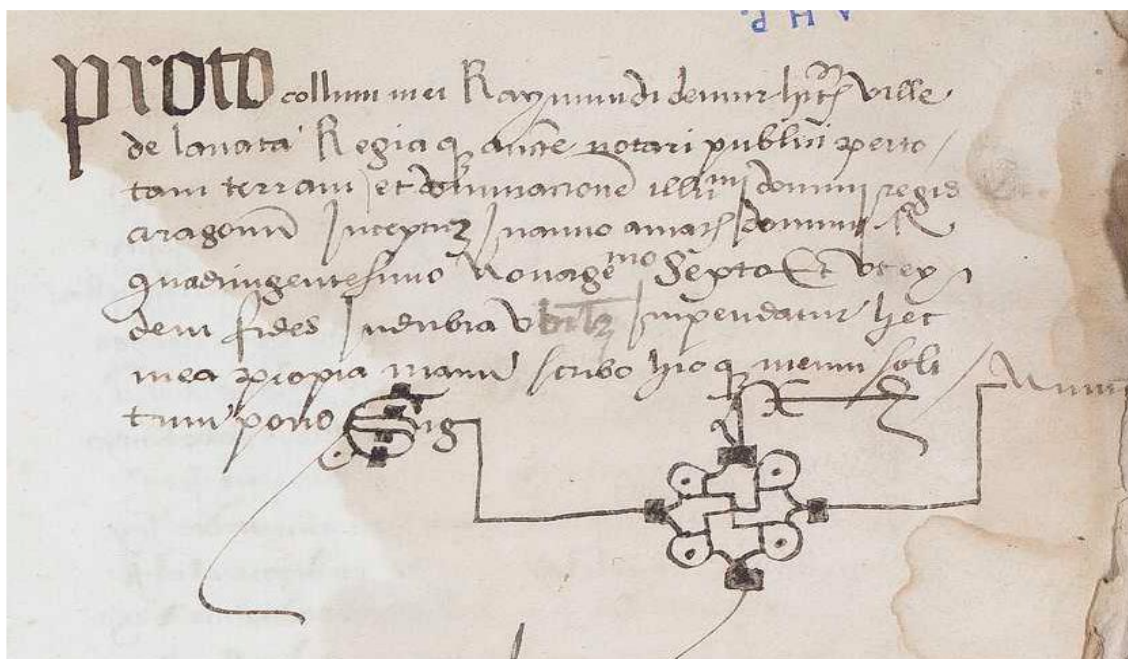 A H P.
Proto collum mei Raymundi demur hitꝫ ville
de lanata Regiaq; aucte notari publici per to
tam terram et dominacionē illumi domini regis
aragonū Inceptuȝ Inanno a domini M
quadringentesimo Nonagemo Sexto Et Vt ey
dem fides Indubia Impendatur hec
mea propia manu scribo hicq; meum soli
tum pono Sig num